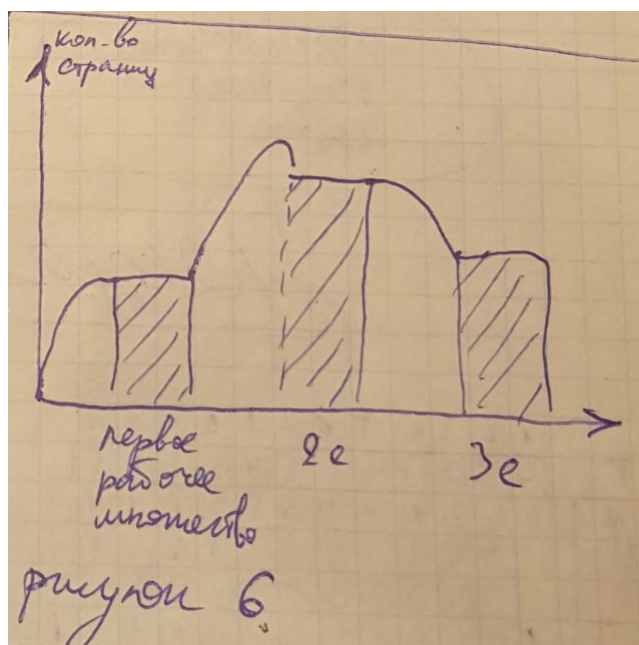 кол-во
страниц
первое
рабочее
множество
2е
3е
рисунок 6